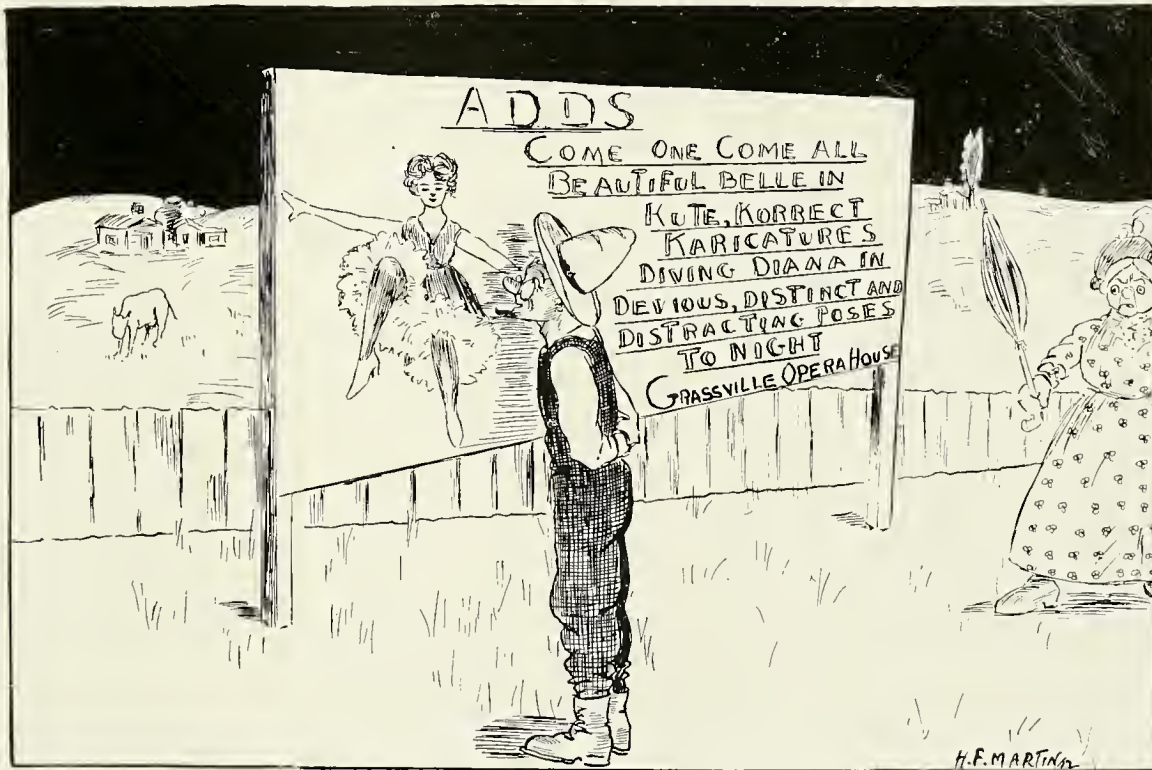 ADDS
COME ONE COME ALL
BEAUTIFUL BELLE IN
KUTE, KORRECT
KARICATURES
DIVING DIANA IN
DEVIOUS, DISTINCT AND
DISTRACTING POSES
TO NIGHT
GRASSVILLE OPERA HOUSE
H.F. MARTIN 12